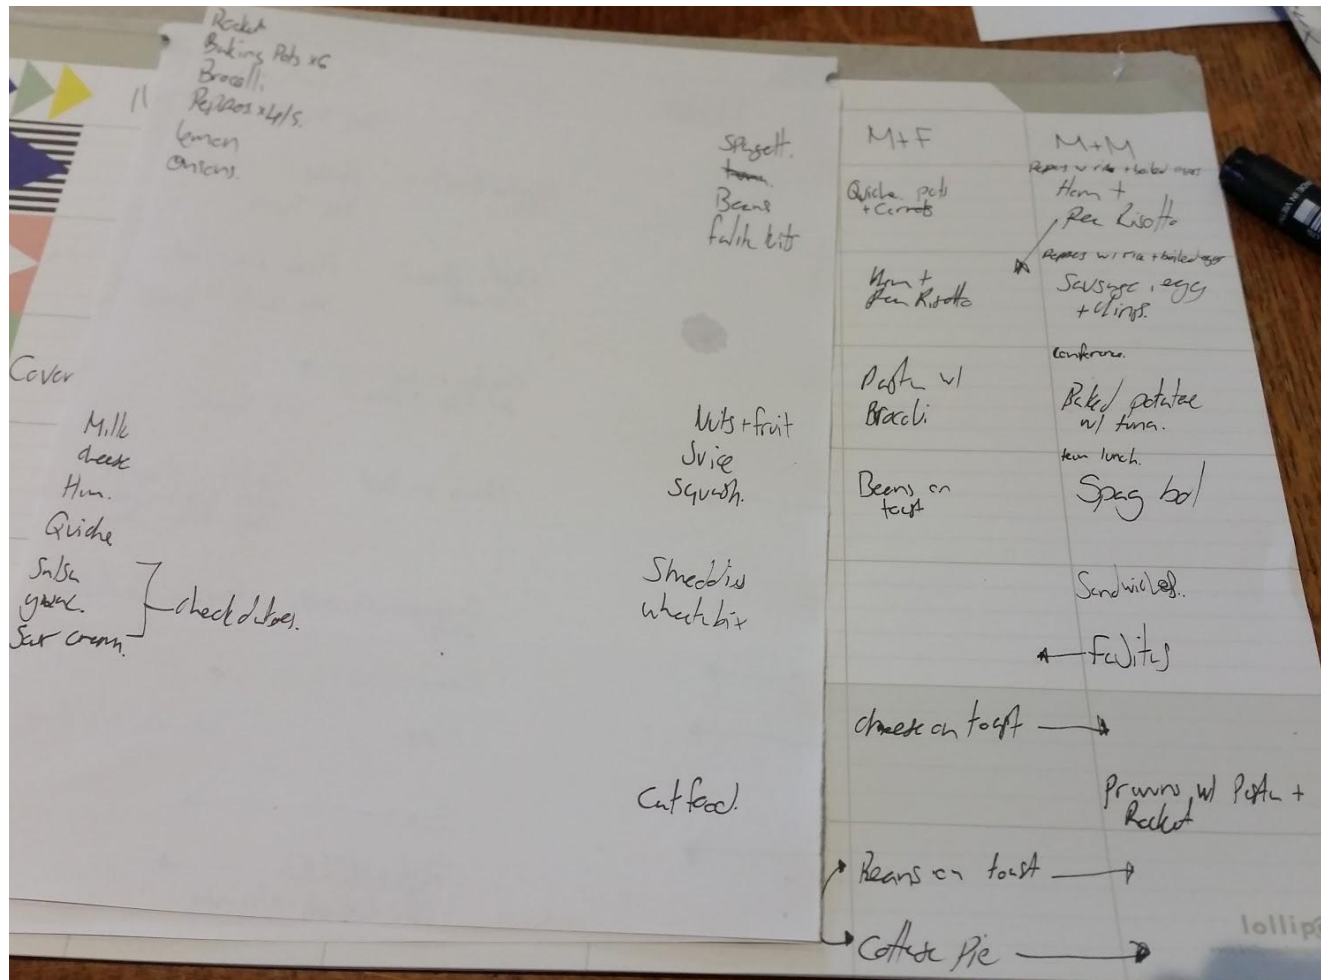 Rocket
Baking Pots x6
Brocolli
Peppers x4/5.
lemon
Onions.
Spagett.
Beans
fajita kits
Cover
Milk
cheese
Ham.
Quiche
Salsa
guac.
Sour cream.
check dates.
Nuts + fruit
Juice
Squash.
Shreddies
wheatbix
Cat food.
M+F
Quiche pots
+ Carrots
Ham +
Pea Risotto
Pasta w/
Brocoli
Beans on
toast
cheese on toast
Beans on toast
Cottage Pie
M+M
Peppers w/ rice + boiled eggs
Ham +
Pea Risotto
Peppers w/ rice + boiled eggs
Sausage, egg
+ chips.
conference.
Baked potatoe
w/ tuna.
team lunch.
Spag bol
Sandwiches.
Fajitas
Prawns w/ Pasta +
Rocket